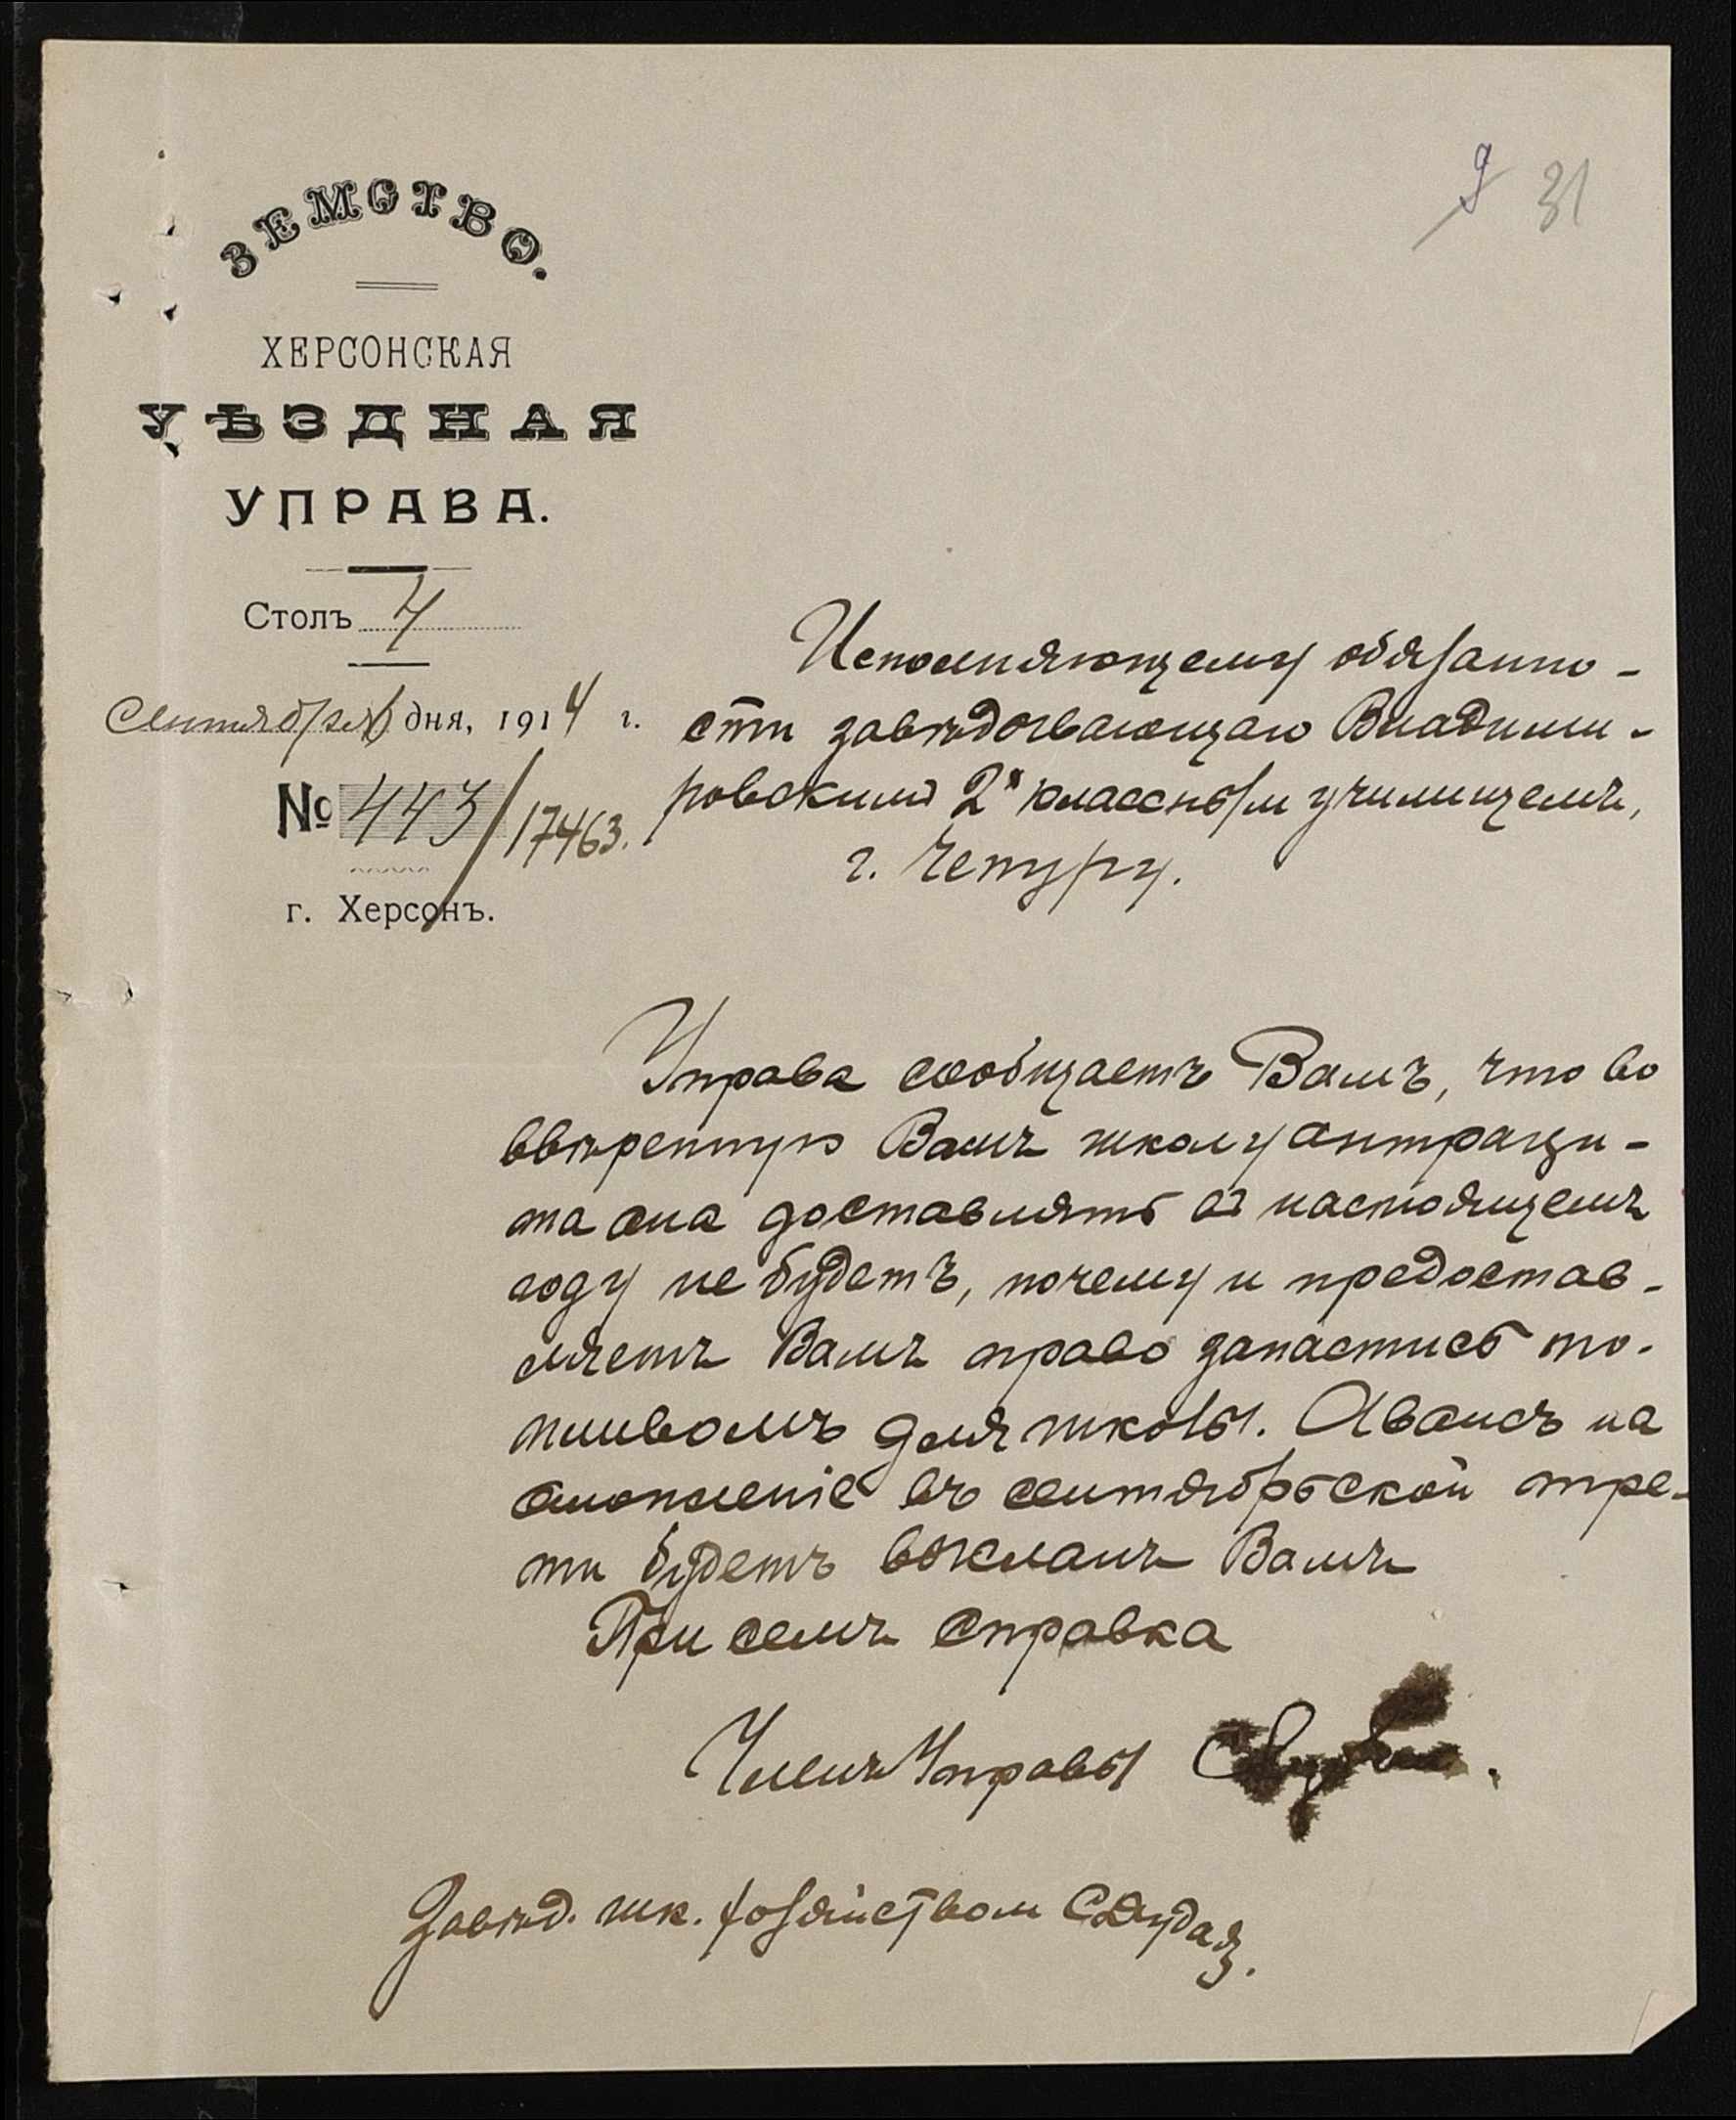 9 31
ЗЕМСТВО.
ХЕРСОНСКАЯ
УѢЗДНАЯ
УПРАВА.
Столъ 4
Сентября дня, 1914 г.
№ 443/17463.
г. Херсонъ.
Исполняющему обязанно-
сти завѣдывающаго Владими-
ровскимъ 2х класснымъ училищемъ,
г. Чепуру.
Управа сообщаетъ Вамъ, что во
ввѣренную Вамъ школу антраци-
та она доставлять въ настоящемъ
году не будетъ, почему и предостав-
ляетъ Вамъ право запастись то-
пливомъ для школы. Авансъ на
отопленіе въ сентябрьской тре-
ти будетъ высланъ Вамъ
При семъ справка
Членъ Управы
Завѣд. шк. хозяйством